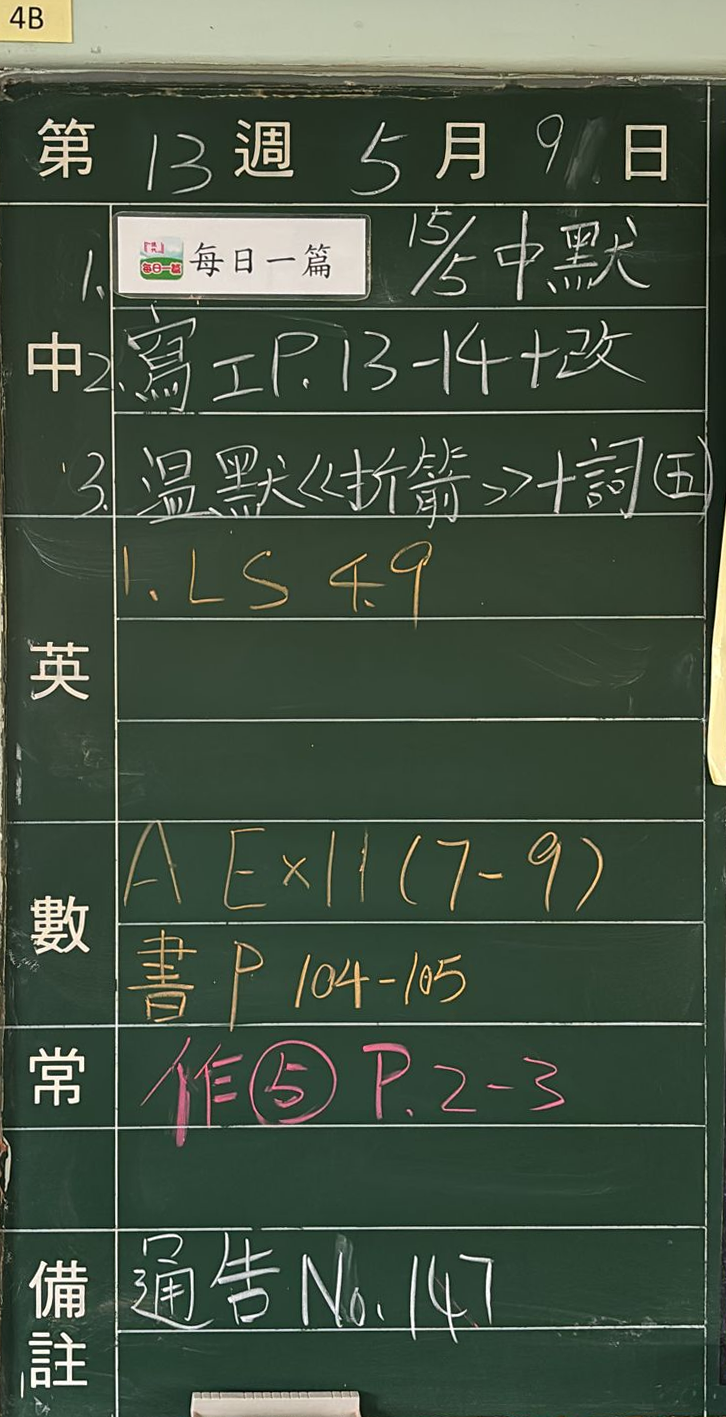 4B
第 13 週 5 月 9 日
中
1. 每日一篇 每日一篇 15/5 中默
2. 寫工P.13-14+改
3. 温默《折箭》+詞(五)
英
1. LS 4.9
數
A Ex11(7-9)
書 P 104-105
常
作⑤ P.2-3
備註
通告 No. 147